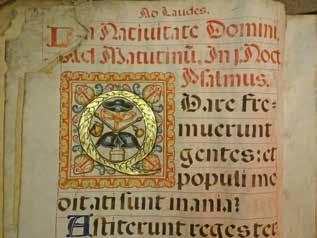 Ad Laudes.
In Nativitate Domini,
Ad Matutinũ, In j Noct
Psalmus.
Quare fre-
muerunt
gentes: et
populi me
ditati sunt inania?
Astiterunt reges ter